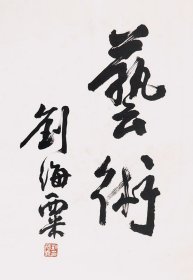 藝術
劉海粟